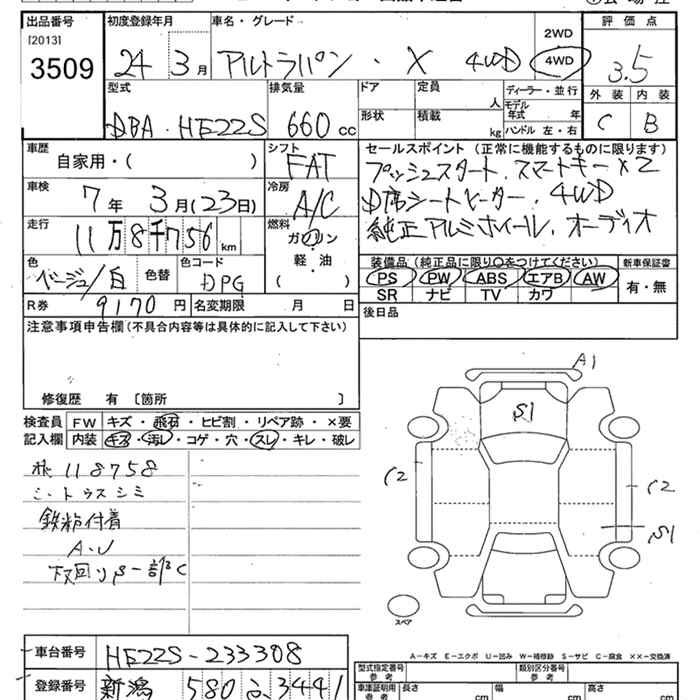 出品番号 初度登録年月 車名・グレード 2WD 評価点
[2013] 3509 24年 3月 アルトラパン・X 4WD 4WD 3.5
型式 排気量 ドア 定員 人 ディーラー・並行 外装 内装
DBA・HE22S 660cc 形状 積載 kg モデル年式 年 ハンドル 左・右 C B
車歴 シフト セールスポイント (正常に機能するものに限ります)
自家用・( ) FAT プッシュスタート、スマートキー×2
車検 冷房 D席シートヒーター、4WD
7年 3月(23日) A/C 純正アルミホイール、オーディオ
走行 燃料
11万8千756km ガソリン
色 色替 色コード 軽・油 装備品(純正品に限り○をつけてください) 新車保証書
ベージュ/白 DPG ( ) PS PW ABS エアB AW 有・無
R券 9170円 名変期限 月 日 SR ナビ TV カワ
注意事項申告欄(不具合内容等は具体的に記入して下さい) 後日品
修復歴 有〔箇所 〕
検査員 FW キズ・飛石・ヒビ割・リペア跡・×要
記入欄 内装 キズ・汚レ・コゲ・穴・スレ・キレ・破レ
A1
S1
C2
C2
S1
スペア
118758
シートウスシミ
鉄粉付着
A・U
下回りS一部C
A-キズ E-エクボ U-凹み W-補修跡 S-サビ C-腐食 ××-交換済
車台番号 HE22S-233308
登録番号 新潟 580 3441
型式指定番号 参考 類別区分番号 参考
車庫証明用 参考 長さ cm 幅 cm 高さ cm